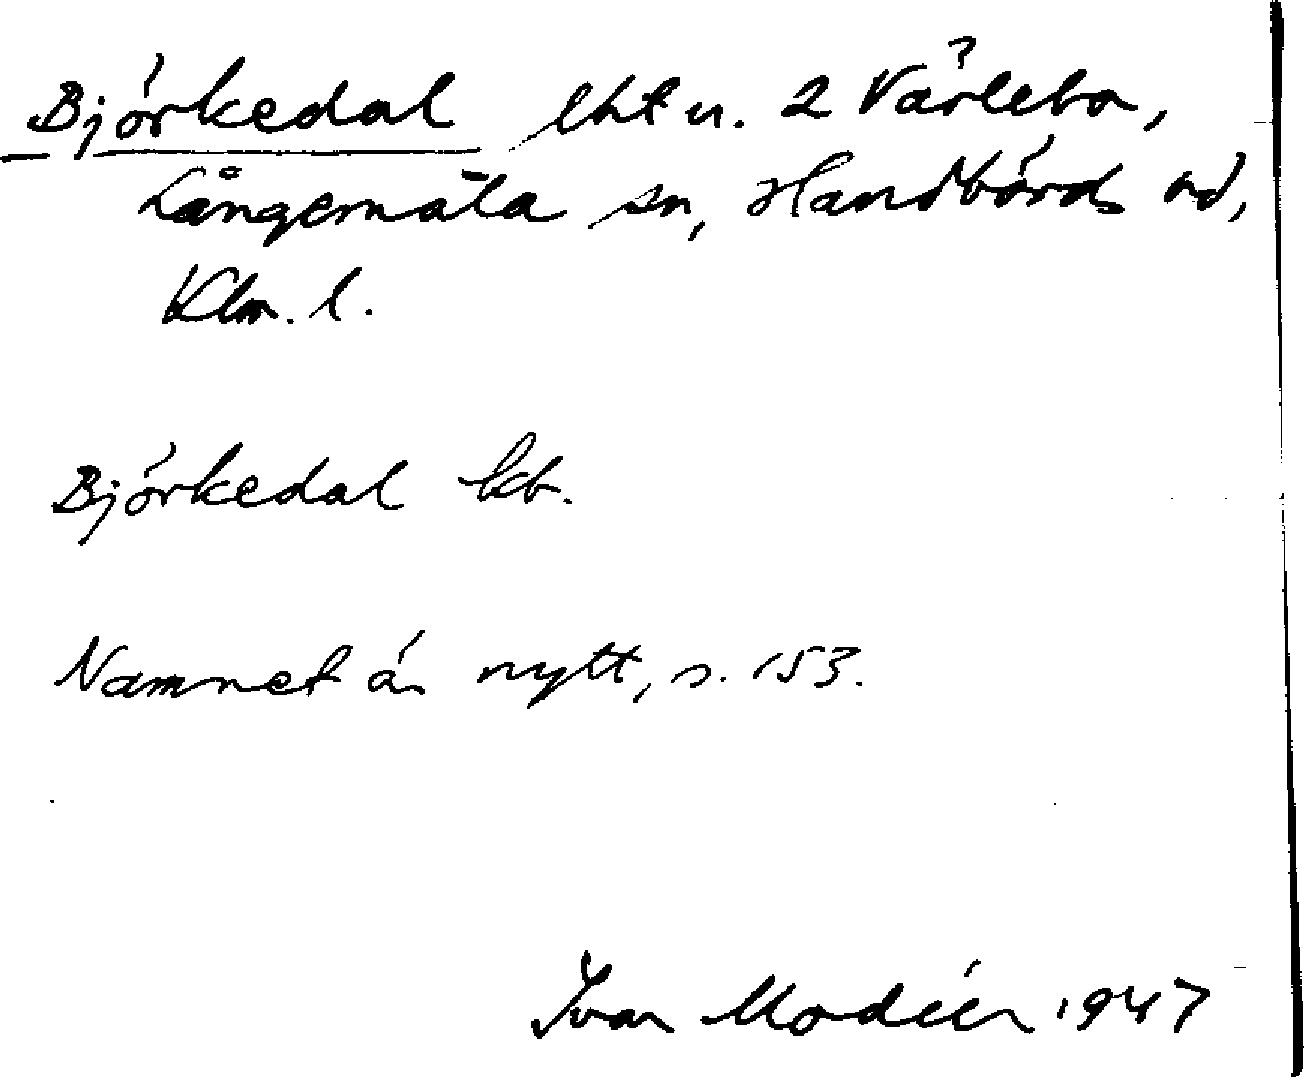 Björkedal lht u. 2 Värlebo,
Långemåla sn, Handbörds hd,
Klm. l.
Björkedal kb.
Namnet är nytt, s. 153.
Ivar Modéer 1947